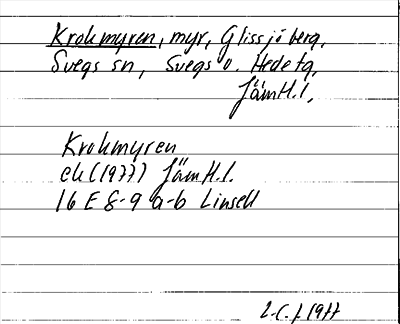 Krokmyren, myr, Glissjöberg,
Svegs sn, Svegs o. Hede tg,
Jämtl.l.
Krokmyren
ek (1977) Jämtl.l.
16 E 8-9 a-b Linsell
1977